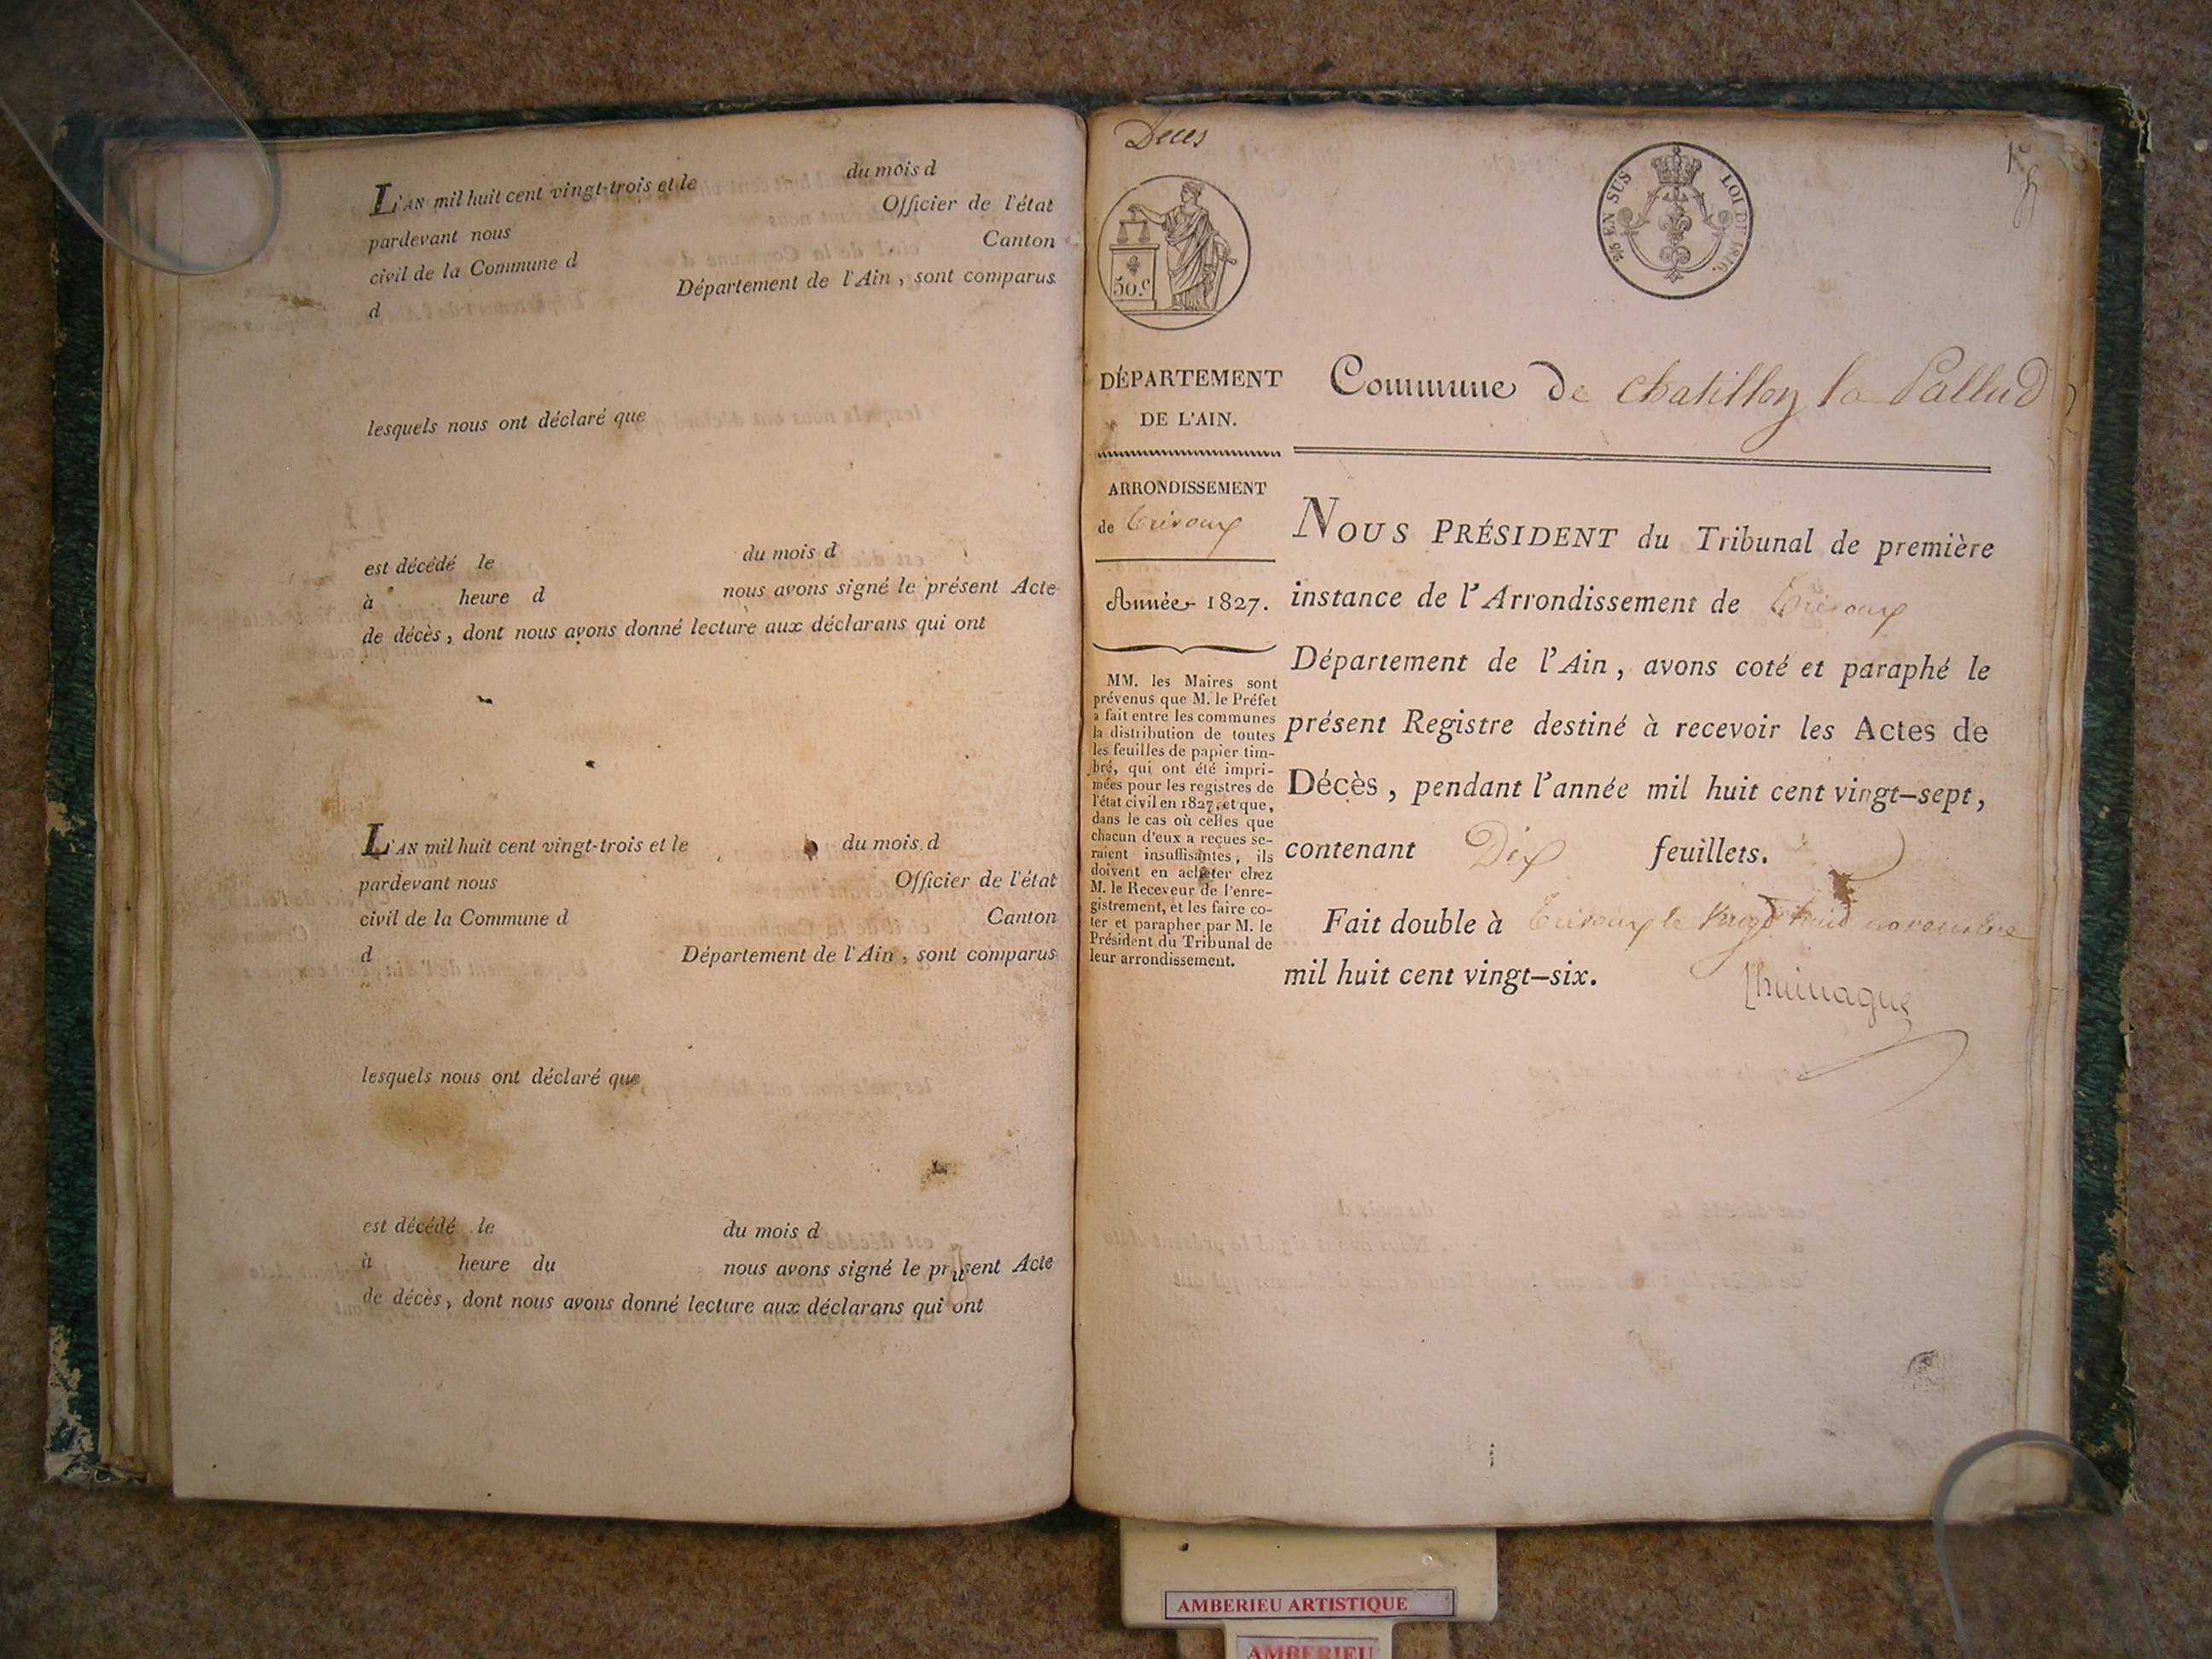 L'AN mil huit cent vingt-trois et le du mois d
pardevant nous Officier de l'état
civil de la Commune d Canton
d Département de l'Ain, sont comparus
lesquels nous ont déclaré que
est décédé le du mois d
à heure d nous avons signé le présent Acte
de décès, dont nous avons donné lecture aux déclarans qui ont
L'AN mil huit cent vingt-trois et le du mois d
pardevant nous Officier de l'état
civil de la Commune d Canton
d Département de l'Ain, sont comparus
lesquels nous ont déclaré que
est décédé le du mois d
à heure du nous avons signé le présent Acte
de décès, dont nous avons donné lecture aux déclarans qui ont
Décès
50.c
EN SUS LOI DE 1816.
DÉPARTEMENT
DE L'AIN.
ARRONDISSEMENT
de Trévoux
Année 1827.
MM. les Maires sont
prévenus que M. le Préfet
a fait entre les communes
la distribution de toutes
les feuilles de papier tim-
bré, qui ont été impri-
mées pour les registres de
l'état civil en 1827, et que,
dans le cas où celles que
chacun d'eux a reçues se-
raient insuffisantes, ils
doivent en acheter chez
M. le Receveur de l'enre-
gistrement, et les faire co-
ter et parapher par M. le
Président du Tribunal de
leur arrondissement.
Commune de chatillon la Pallud
NOUS PRÉSIDENT du Tribunal de première
instance de l'Arrondissement de Trévoux
Département de l'Ain, avons coté et paraphé le
présent Registre destiné à recevoir les Actes de
Décès, pendant l'année mil huit cent vingt-sept,
contenant Dix feuillets.
Fait double à Trévoux le vingt huit novembre
mil huit cent vingt-six.
AMBERIEU ARTISTIQUE
AMBERIEU